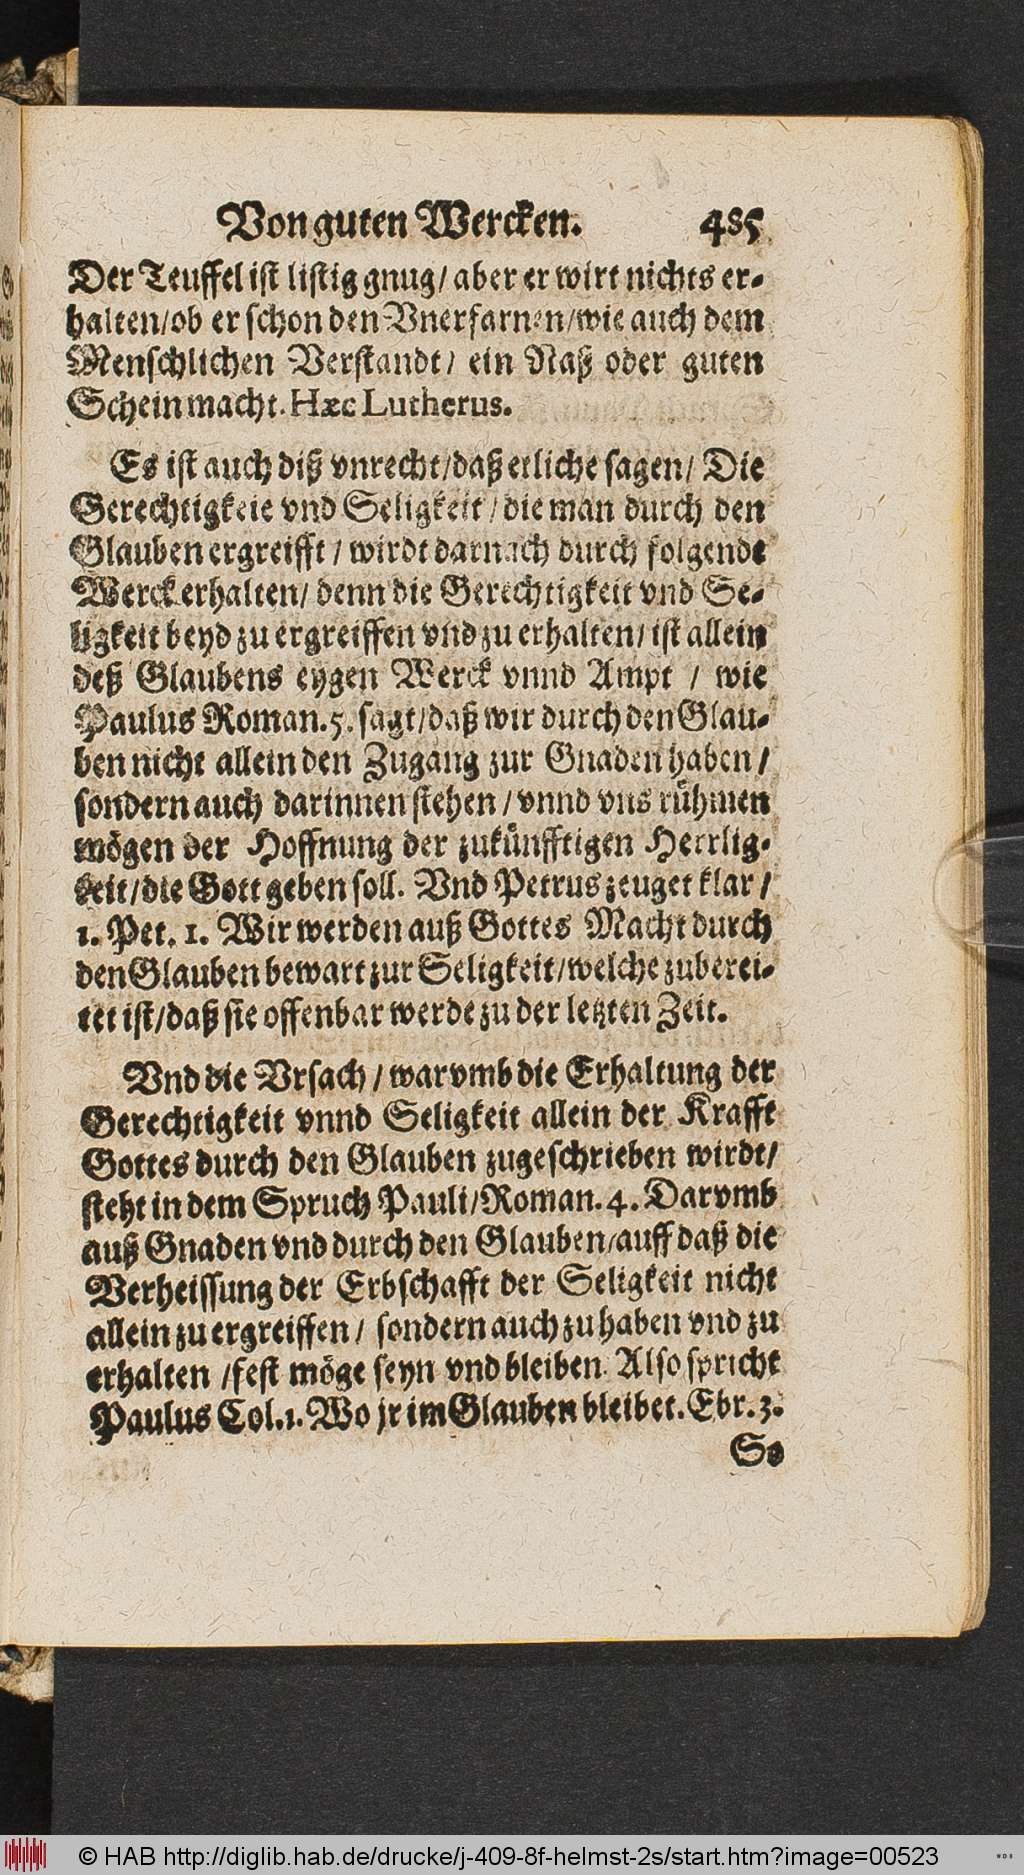 Von guten Wercken. 485
Der Teuffel ist listig gnug/ aber er wirt nichts er-
halten/ob er schon den Vnerfarnen/wie auch dem
Menschlichen Verstandt/ ein Naß oder guten
Schein macht. Hæc Lutherus.
Es ist auch diß vnrecht/daß etliche sagen/ Die
Gerechtigkeit vnd Seligkeit/die man durch den
Glauben ergreifft/ wirdt darnach durch folgende
Werck erhalten/ denn die Gerechtigkeit vnd Se-
ligkeit beyd zu ergreiffen vnd zu erhalten/ ist allein
deß Glaubens eygen Werck vnnd Ampt / wie
Paulus Roman. 5. sagt/daß wir durch den Glau-
ben nicht allein den Zugang zur Gnaden haben/
sondern auch darinnen stehen/ vnnd vns rühmen
mögen der Hoffnung der zukünfftigen Herrlig-
keit/die Gott geben soll. Vnd Petrus zeuget klar/
1. Pet. 1. Wir werden auß Gottes Macht durch
den Glauben bewart zur Seligkeit/welche zuberei-
tet ist/daß sie offenbar werde zu der letzten Zeit.
Vnd die Vrsach/ warvmb die Erhaltung der
Gerechtigkeit vnnd Seligkeit allein der Krafft
Gottes durch den Glauben zugeschrieben wirdt/
steht in dem Spruch Pauli/Roman. 4. Darvmb
auß Gnaden vnd durch den Glauben/auff daß die
Verheissung der Erbschafft der Seligkeit nicht
allein zu ergreiffen/ sondern auch zu haben vnd zu
erhalten /fest möge seyn vnd bleiben. Also spricht
Paulus Col. 1. Wo jr im Glauben bleibet. Ebr. 3.
So
© HAB http://diglib.hab.de/drucke/j-409-8f-helmst-2s/start.htm?image=00523